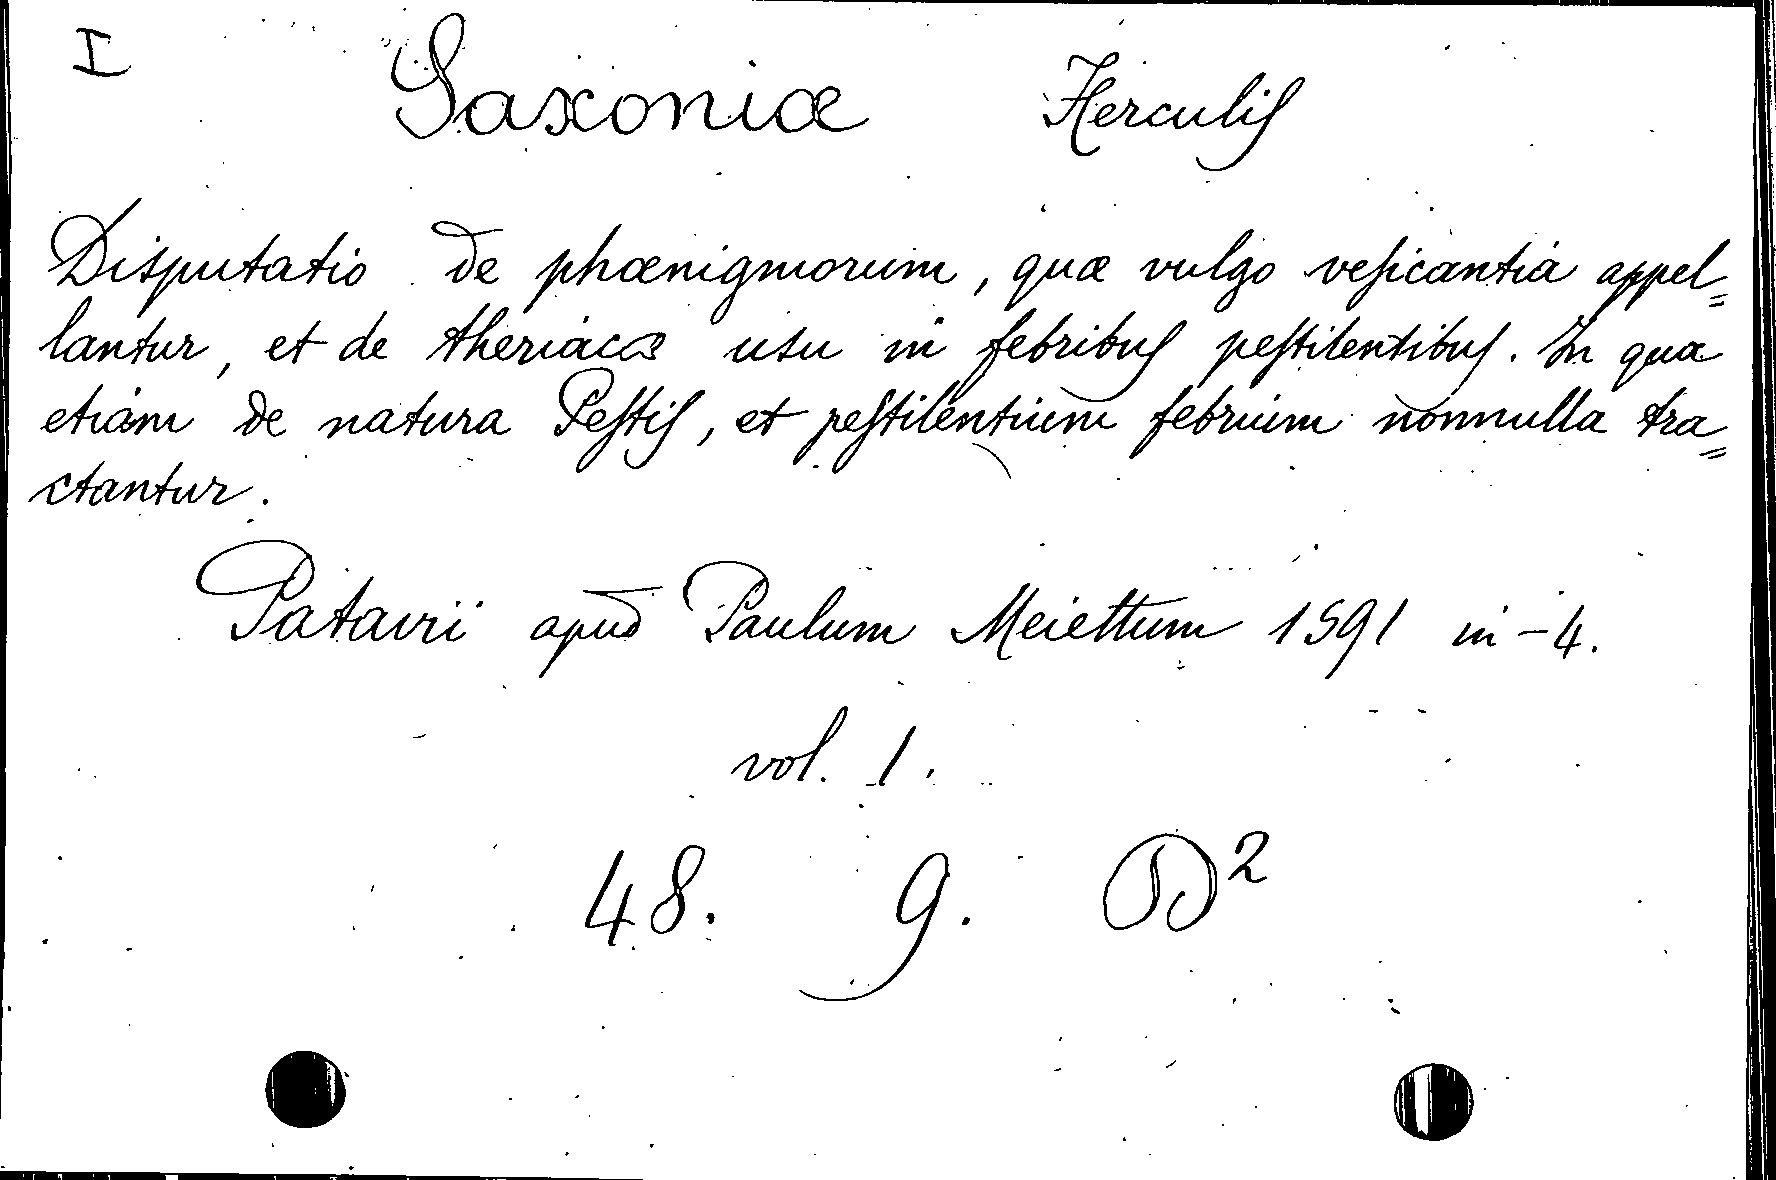 I
Saxoniæ Herculis
Disputatio de phœnigmorum, quæ vulgo vesicantia appel=
lantur, et de theriacæ usu in febribus pestilentibus. In qua
etiam de natura Pestis, et pestilentium febrium nonnulla tra=
ctantur.
Patavii apud Paulum Meiettum 1591 in-4.
vol. 1.
48. 9. D²